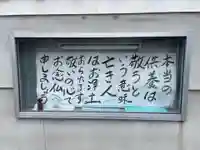 本当の
供養は
敬うと
いう意味
亡き人
はお浄土
おられます
敬いの心で
お念仏
申しましょう